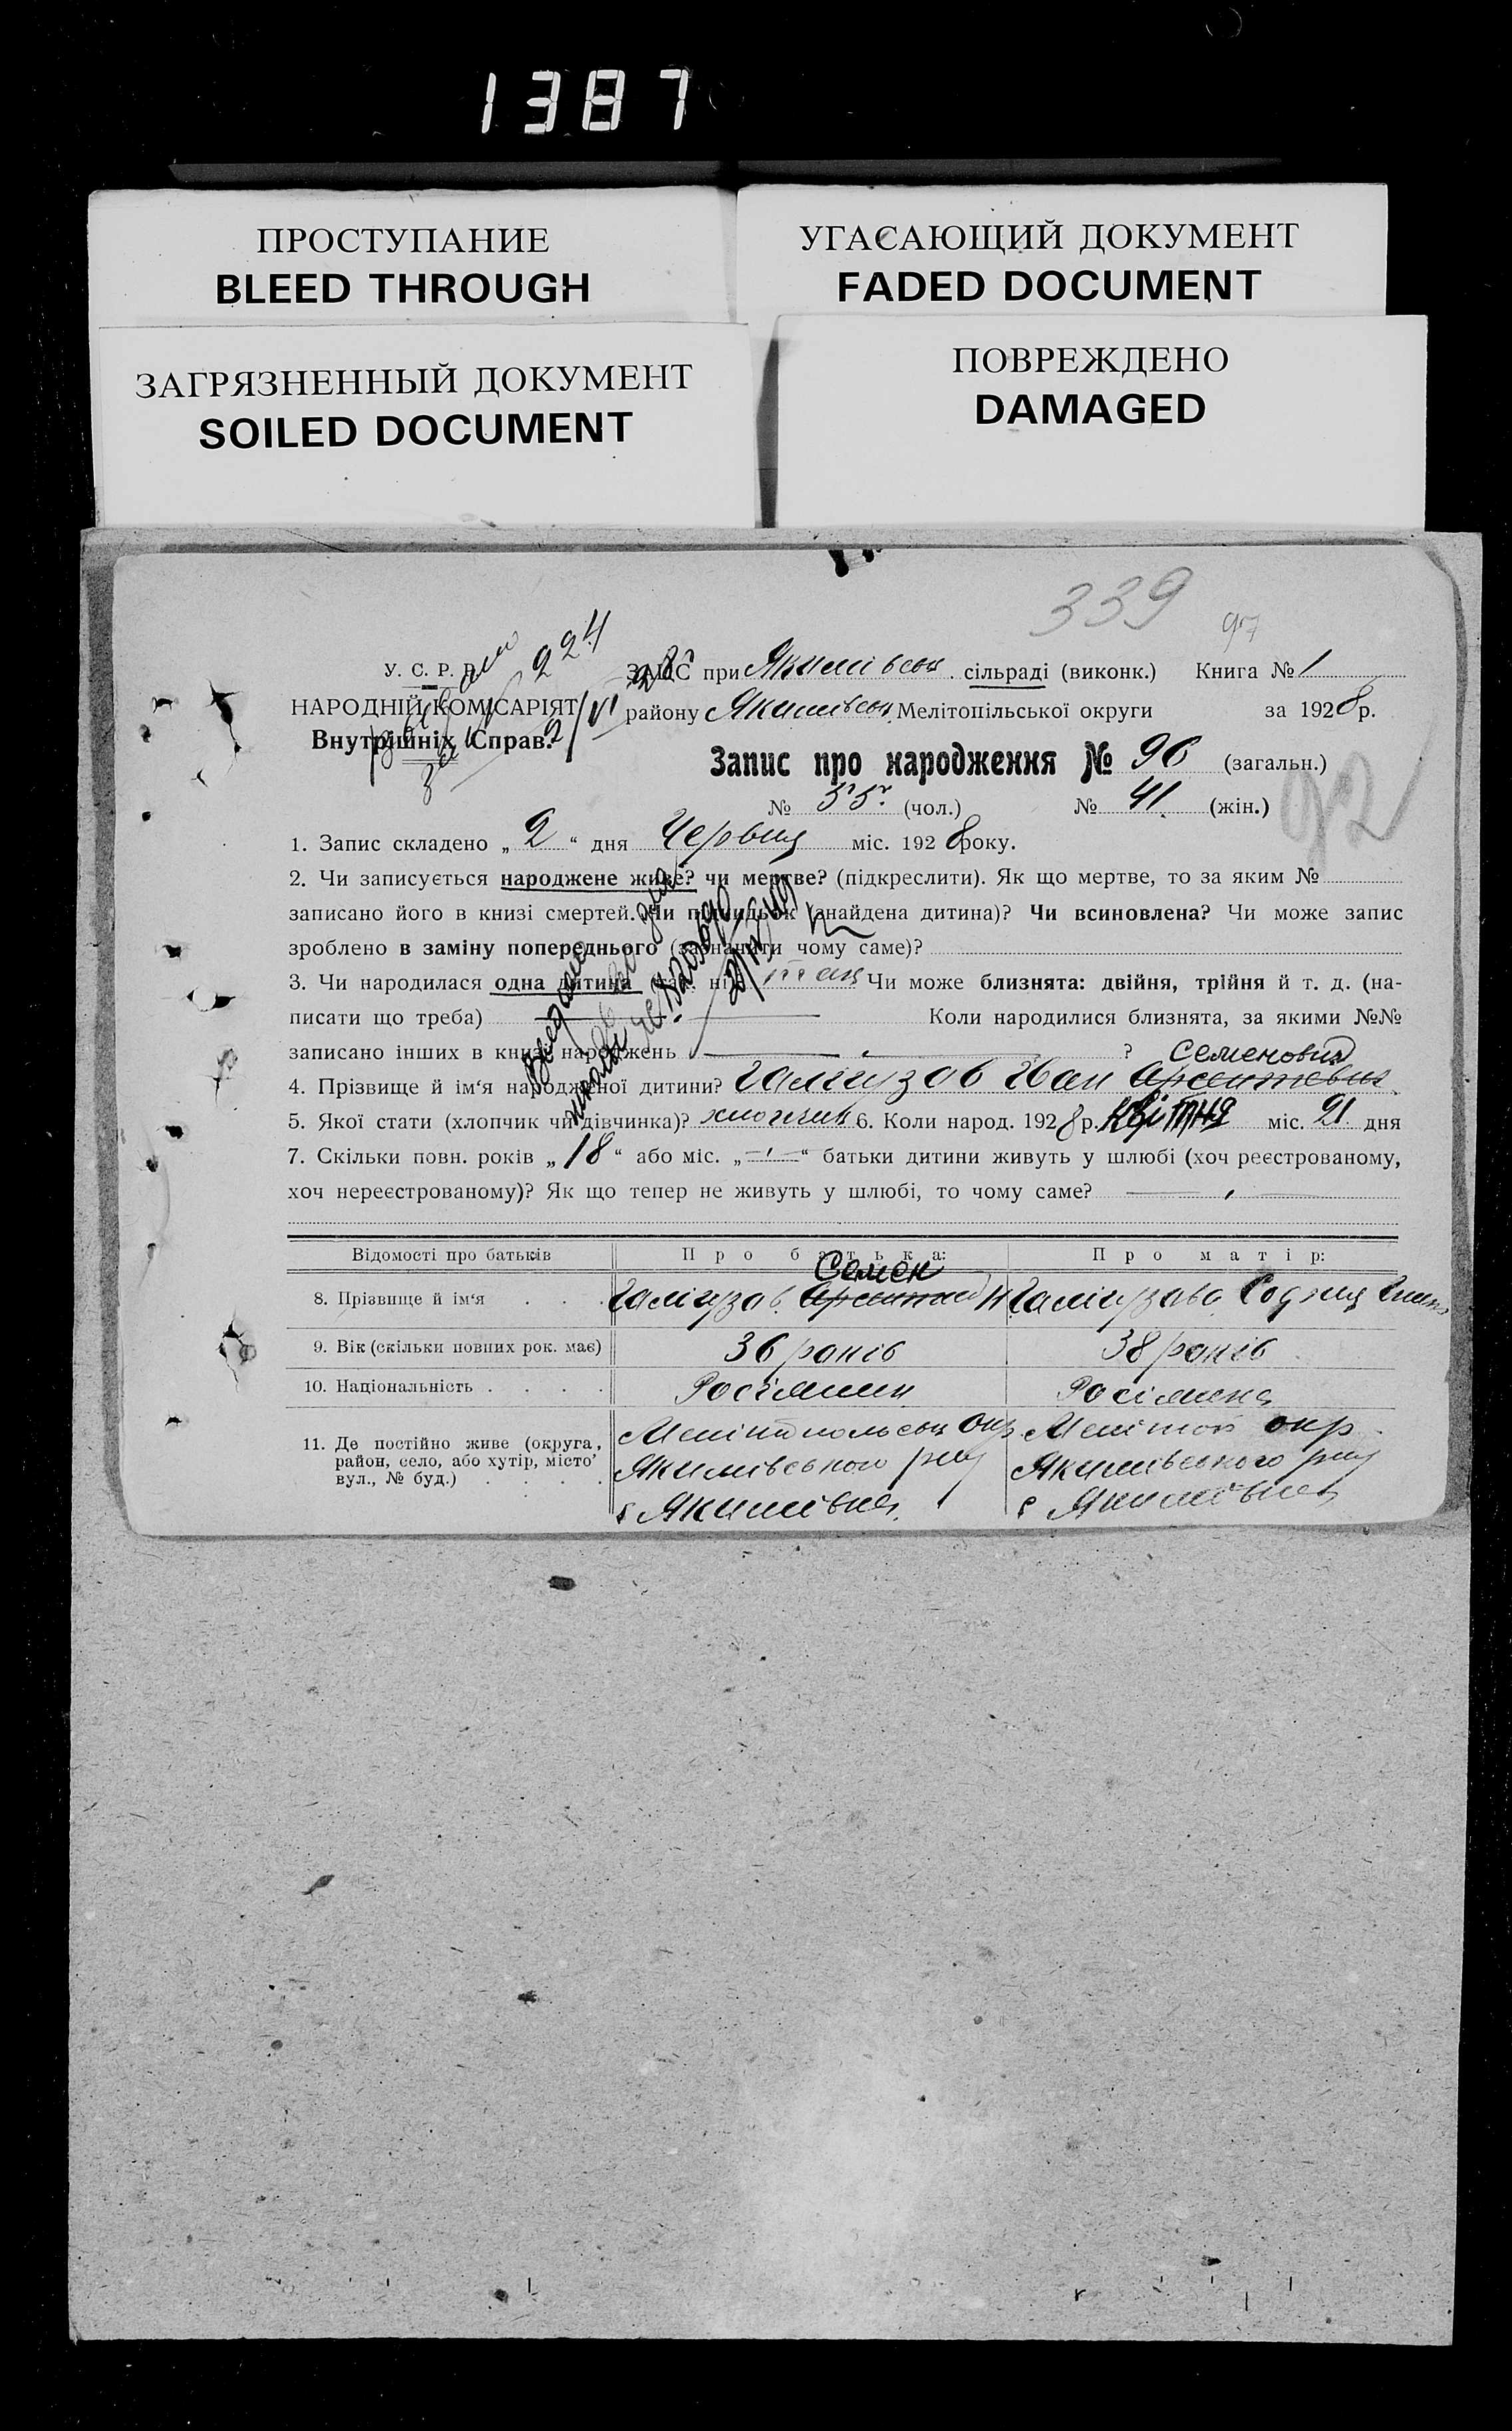 1387
ПРОСТУПАНИЕ
BLEED THROUGH
УГАСАЮЩИЙ ДОКУМЕНТ
FADED DOCUMENT
ЗАГРЯЗНЕННЫЙ ДОКУМЕНТ
SOILED DOCUMENT
ПОВРЕЖДЕНО
DAMAGED
339
97
224
У. С. Р. Р.
НАРОДНІЙ КОМІСАРІЯТ
Внутрішніх Справ.
ЗАЦС при Якимівськ. сільраді (виконк.) Книга № 1
району Якимівськ. Мелітопільської округи за 1928 р.
Запис про народження № 96 (загальн.)
№ 55 (чол.) № 41 (жін.)
92
1. Запис складено „ 2 “ дня Червня міс. 1928 року.
2. Чи записується народжене живе? чи мертве? (підкреслити). Як що мертве, то за яким №
записано його в книзі смертей. Чи підкидьок (знайдена дитина)? Чи всиновлена? Чи може запис
зроблено в заміну попереднього (зазначити чому саме)?
3. Чи народилася одна дитина так Чи може близнята: двійня, трійня й т. д. (на-
писати що треба) Коли народилися близнята, за якими №№
записано інших в книзі народжень ?
Семенович
4. Прізвище й ім‘я народженої дитини? Галігузов Иван Арсентевич
5. Якої стати (хлопчик чи дівчинка)? хлопчик 6. Коли народ. 1928 р. Квітня міс. 21 дня
7. Скільки повн. років „ 18 “ або міс. „ — “ батьки дитини живуть у шлюбі (хоч реєстрованому,
хоч нереєстрованому)? Як що тепер не живуть у шлюбі, то чому саме?
Відомості про батьків Про батька: Про матір:
Семен
8. Прізвище й ім‘я Галігузов Галігузова
9. Вік (скільки повних рок. має) 36 років 38 років
10. Національність
11. Де постійно живе (округа, район, село, або хутір, місто’ вул., № буд.)
Мелітопольськ Окр Мелітоп окр
Якимівського р-ну Якимівського р-ну
с Якимівка с Якимівка